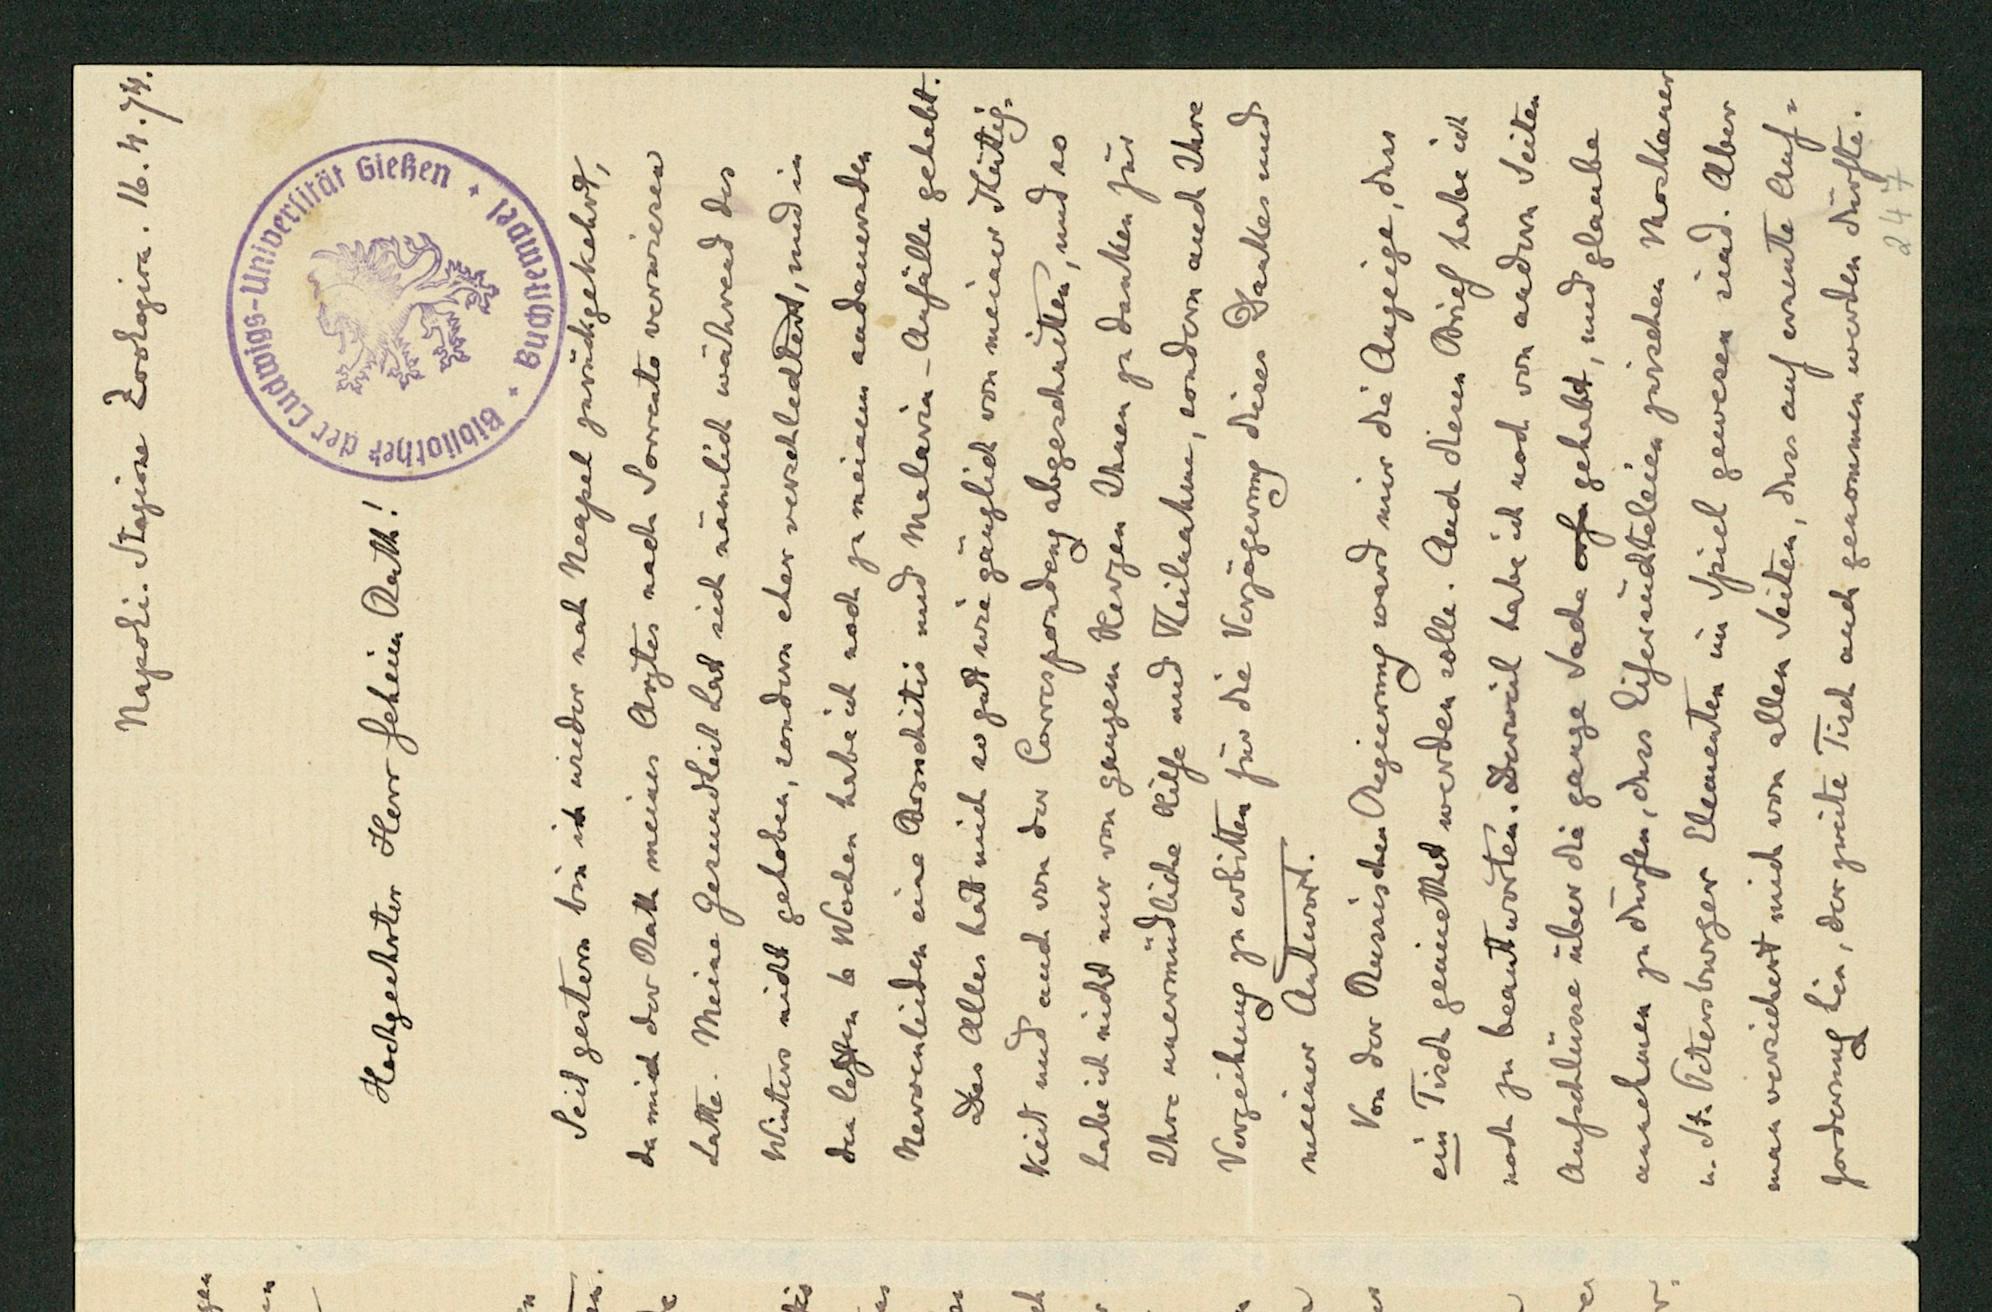 Napoli. Stazione Zoologica. 16.4.74.
Bibliothek der Ludwigs-Universität Gießen
Buchstempel
Hochgeehrter Herr Geheim Rath!
Seit gestern bin ich wieder nach Neapel zurückgekehrt,
da mich der Rath meines Arztes nach Sorrento verwiesen
hatte. Meine Gesundheit hat sich nämlich während des
Winters nicht gehoben, sondern eher verschlechtert, und in
den letzten 6 Wochen habe ich noch zu meinem andauernden
Nervenleiden eine Bronchitis und Malaria-Anfälle gehabt.
Das Alles hat mich so gut wie gänzlich von meiner Thätig-
keit und auch von der Correspondenz abgeschnitten, und so
habe ich nicht nur von ganzem Herzen Ihnen zu danken für
Ihre unermüdliche Hilfe und Theilnahme, sondern auch Ihre
Verzeihung zu erbitten für die Verzögerung dieses Dankes und
meiner Antwort.
Von der Russischen Regierung ward mir die Anzeige, dass
ein Tisch gemiethet werden solle. Auch diesen Brief habe ich
noch zu beantworten. Derweil habe ich noch von andern Seiten
Aufschlüsse über die ganze Sache gehabt, und glaube
annehmen zu dürfen, dass Eifersüchteleien zwischen Moskauer
u. St. Petersburger Elementen im Spiel gewesen sind. Aber
man versichert mich von allen Seiten, dass auf erneute Auf-
forderung hin, der zweite Tisch auch genommen werden dürfte.
247